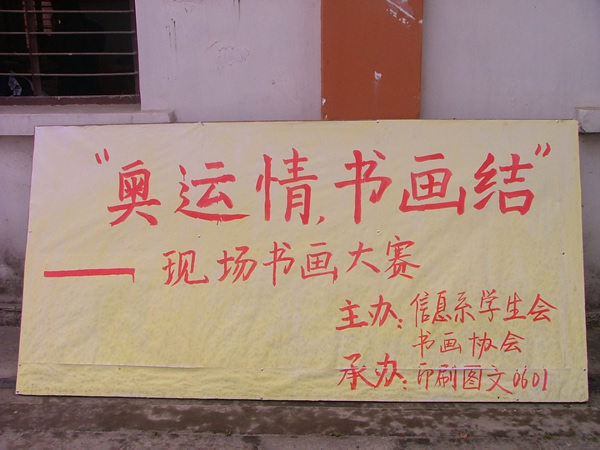 “奥运情,书画结”
——现场书画大赛
主办:信息系学生会
书画协会
承办:印刷图文0601